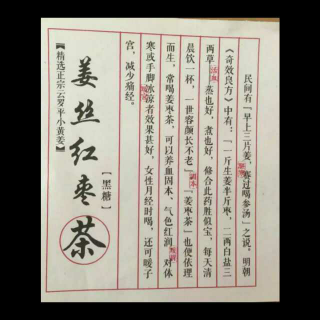 民间有『早上三片姜，赛过喝参汤』之说。明朝
《奇效良方》中有：『一斤生姜半斤枣，二两白盐三
两草。蒸也好，煮也好，修合此药胜似宝，每天清
晨饮一杯，一世容颜长不老』『姜枣茶』也便依理
而生，常喝姜枣茶，可以养血固本、气色红润。对体
寒或手脚冰凉者效果甚好，女性月经时喝，还可暖子
宫，减少痛经。
【黑糖】
姜丝红枣茶
【精选正宗云罗平小黄姜】